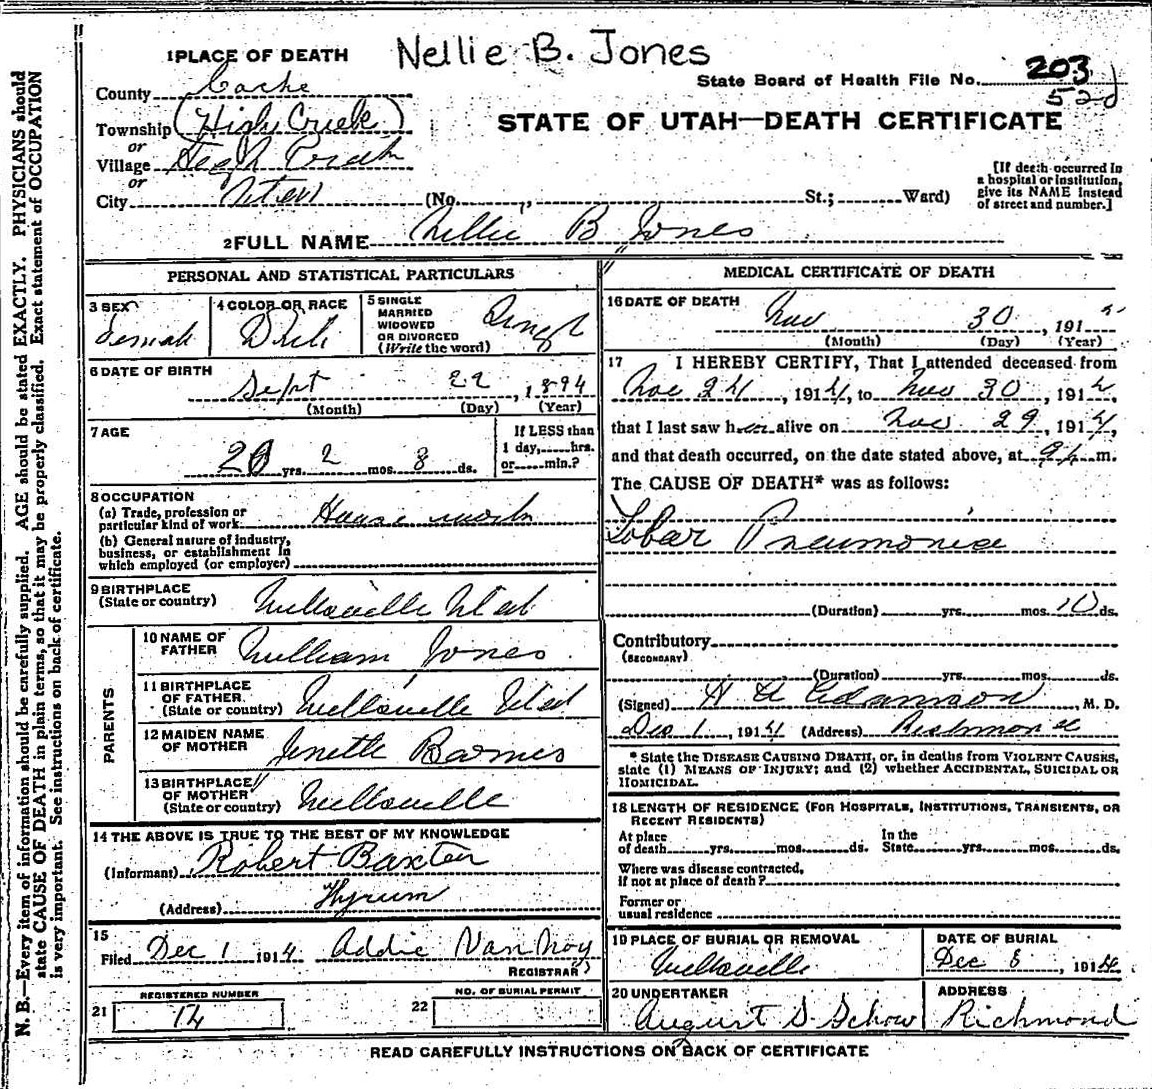 Nellie B. Jones
1 PLACE OF DEATH
State Board of Health File No. 203
52d
County Cache
Township (High Creek)
or
Village High Creek
or
City
STATE OF UTAH—DEATH CERTIFICATE
(No. , St.; Ward)
[If death occurred in
a hospital or institution,
give its NAME instead
of street and number.]
2 FULL NAME Nellie B Jones
PERSONAL AND STATISTICAL PARTICULARS
3 SEX
Female
4 COLOR OR RACE
5 SINGLE
MARRIED
WIDOWED
OR DIVORCED
(Write the word)
Single
6 DATE OF BIRTH
Sept 22, 1894
(Month) (Day) (Year)
7 AGE
20 yrs. 2 mos. 8 ds.
If LESS than
1 day, hrs.
or min.?
8 OCCUPATION
(a) Trade, profession or
particular kind of work House work
(b) General nature of industry,
business, or establishment in
which employed (or employer)
9 BIRTHPLACE
(State or country) Wellsville Utah
PARENTS
10 NAME OF
FATHER William Jones
11 BIRTHPLACE
OF FATHER
(State or country) Wellsville Utah
12 MAIDEN NAME
OF MOTHER Jenette Barnes
13 BIRTHPLACE
OF MOTHER
(State or country) Wellsville
14 THE ABOVE IS TRUE TO THE BEST OF MY KNOWLEDGE
(Informant) Robert Baxter
(Address) Hyrum
15
Filed Dec 1 1914 Addie Van Noy
REGISTRAR
REGISTERED NUMBER
21 14
NO. OF BURIAL PERMIT
22
MEDICAL CERTIFICATE OF DEATH
16 DATE OF DEATH
Nov 30, 191
(Month) (Day) (Year)
17 I HEREBY CERTIFY, That I attended deceased from
Nov 24, 1914, to Nov 30, 1914,
that I last saw her alive on Nov 29, 1914,
and that death occurred, on the date stated above, at m.
The CAUSE OF DEATH* was as follows:
Lobar Pneumonia
(Duration) yrs. mos. 10 ds.
Contributory
(SECONDARY)
(Duration) yrs. mos. ds.
(Signed) Adamson, M. D.
Dec 1, 1914 (Address) Richmond
* State the DISEASE CAUSING DEATH, or, in deaths from VIOLENT CAUSES,
state (1) MEANS OF INJURY; and (2) whether ACCIDENTAL, SUICIDAL OR
HOMICIDAL.
18 LENGTH OF RESIDENCE (FOR HOSPITALS, INSTITUTIONS, TRANSIENTS, OR
RECENT RESIDENTS)
At place
of death yrs. mos. ds.
In the
State yrs. mos. ds.
Where was disease contracted,
if not at place of death?
Former or
usual residence
19 PLACE OF BURIAL OR REMOVAL
Wellsville
DATE OF BURIAL
Dec 1914
20 UNDERTAKER
August S Schow
ADDRESS
Richmond
READ CAREFULLY INSTRUCTIONS ON BACK OF CERTIFICATE
N. B.—Every item of information should be carefully supplied. AGE should be stated EXACTLY. PHYSICIANS should
state CAUSE OF DEATH in plain terms, so that it may be properly classified. Exact statement of OCCUPATION
is very important. See instructions on back of certificate.